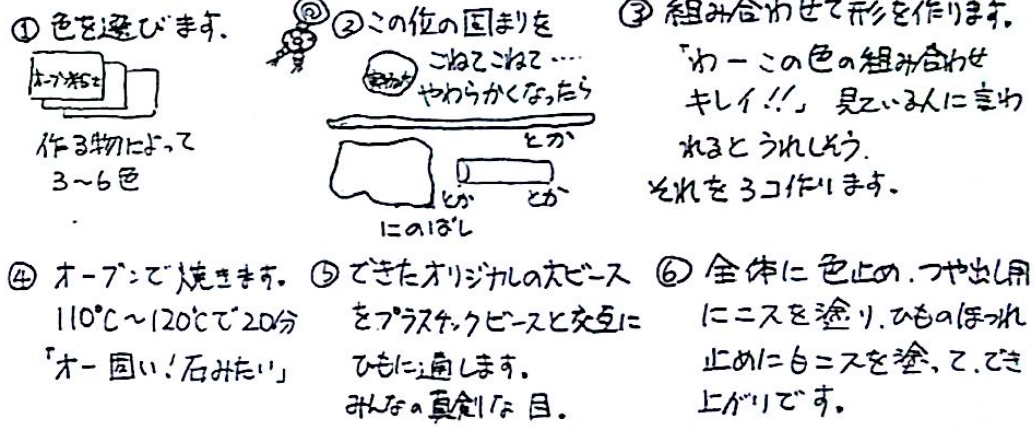 ① 色を選びます.
オーブン粘土
作る物によって
3～6色
②この位の固まりを
実物大
こねてこねて‥‥
やわらかくなったら
とか
とか
とか
にのばし
③ 組み合わせて形を作ります.
「わーこの色の組み合わせ
キレイ!!」 見ている人に言わ
れると うれしそう.
それを3コ作ります.
④ オーブンで焼きます.
110℃～120℃で20分
「オー固い!石みたい」
⑤できたオリジナルの大ビース
をプラスチックビースと交互に
ひもに通します.
みんなの真剣な目.
⑥ 全体に色止め.つや出し用
にニスを塗り.ひものほつれ
止めに白ニスを塗って.でき
上がりです.